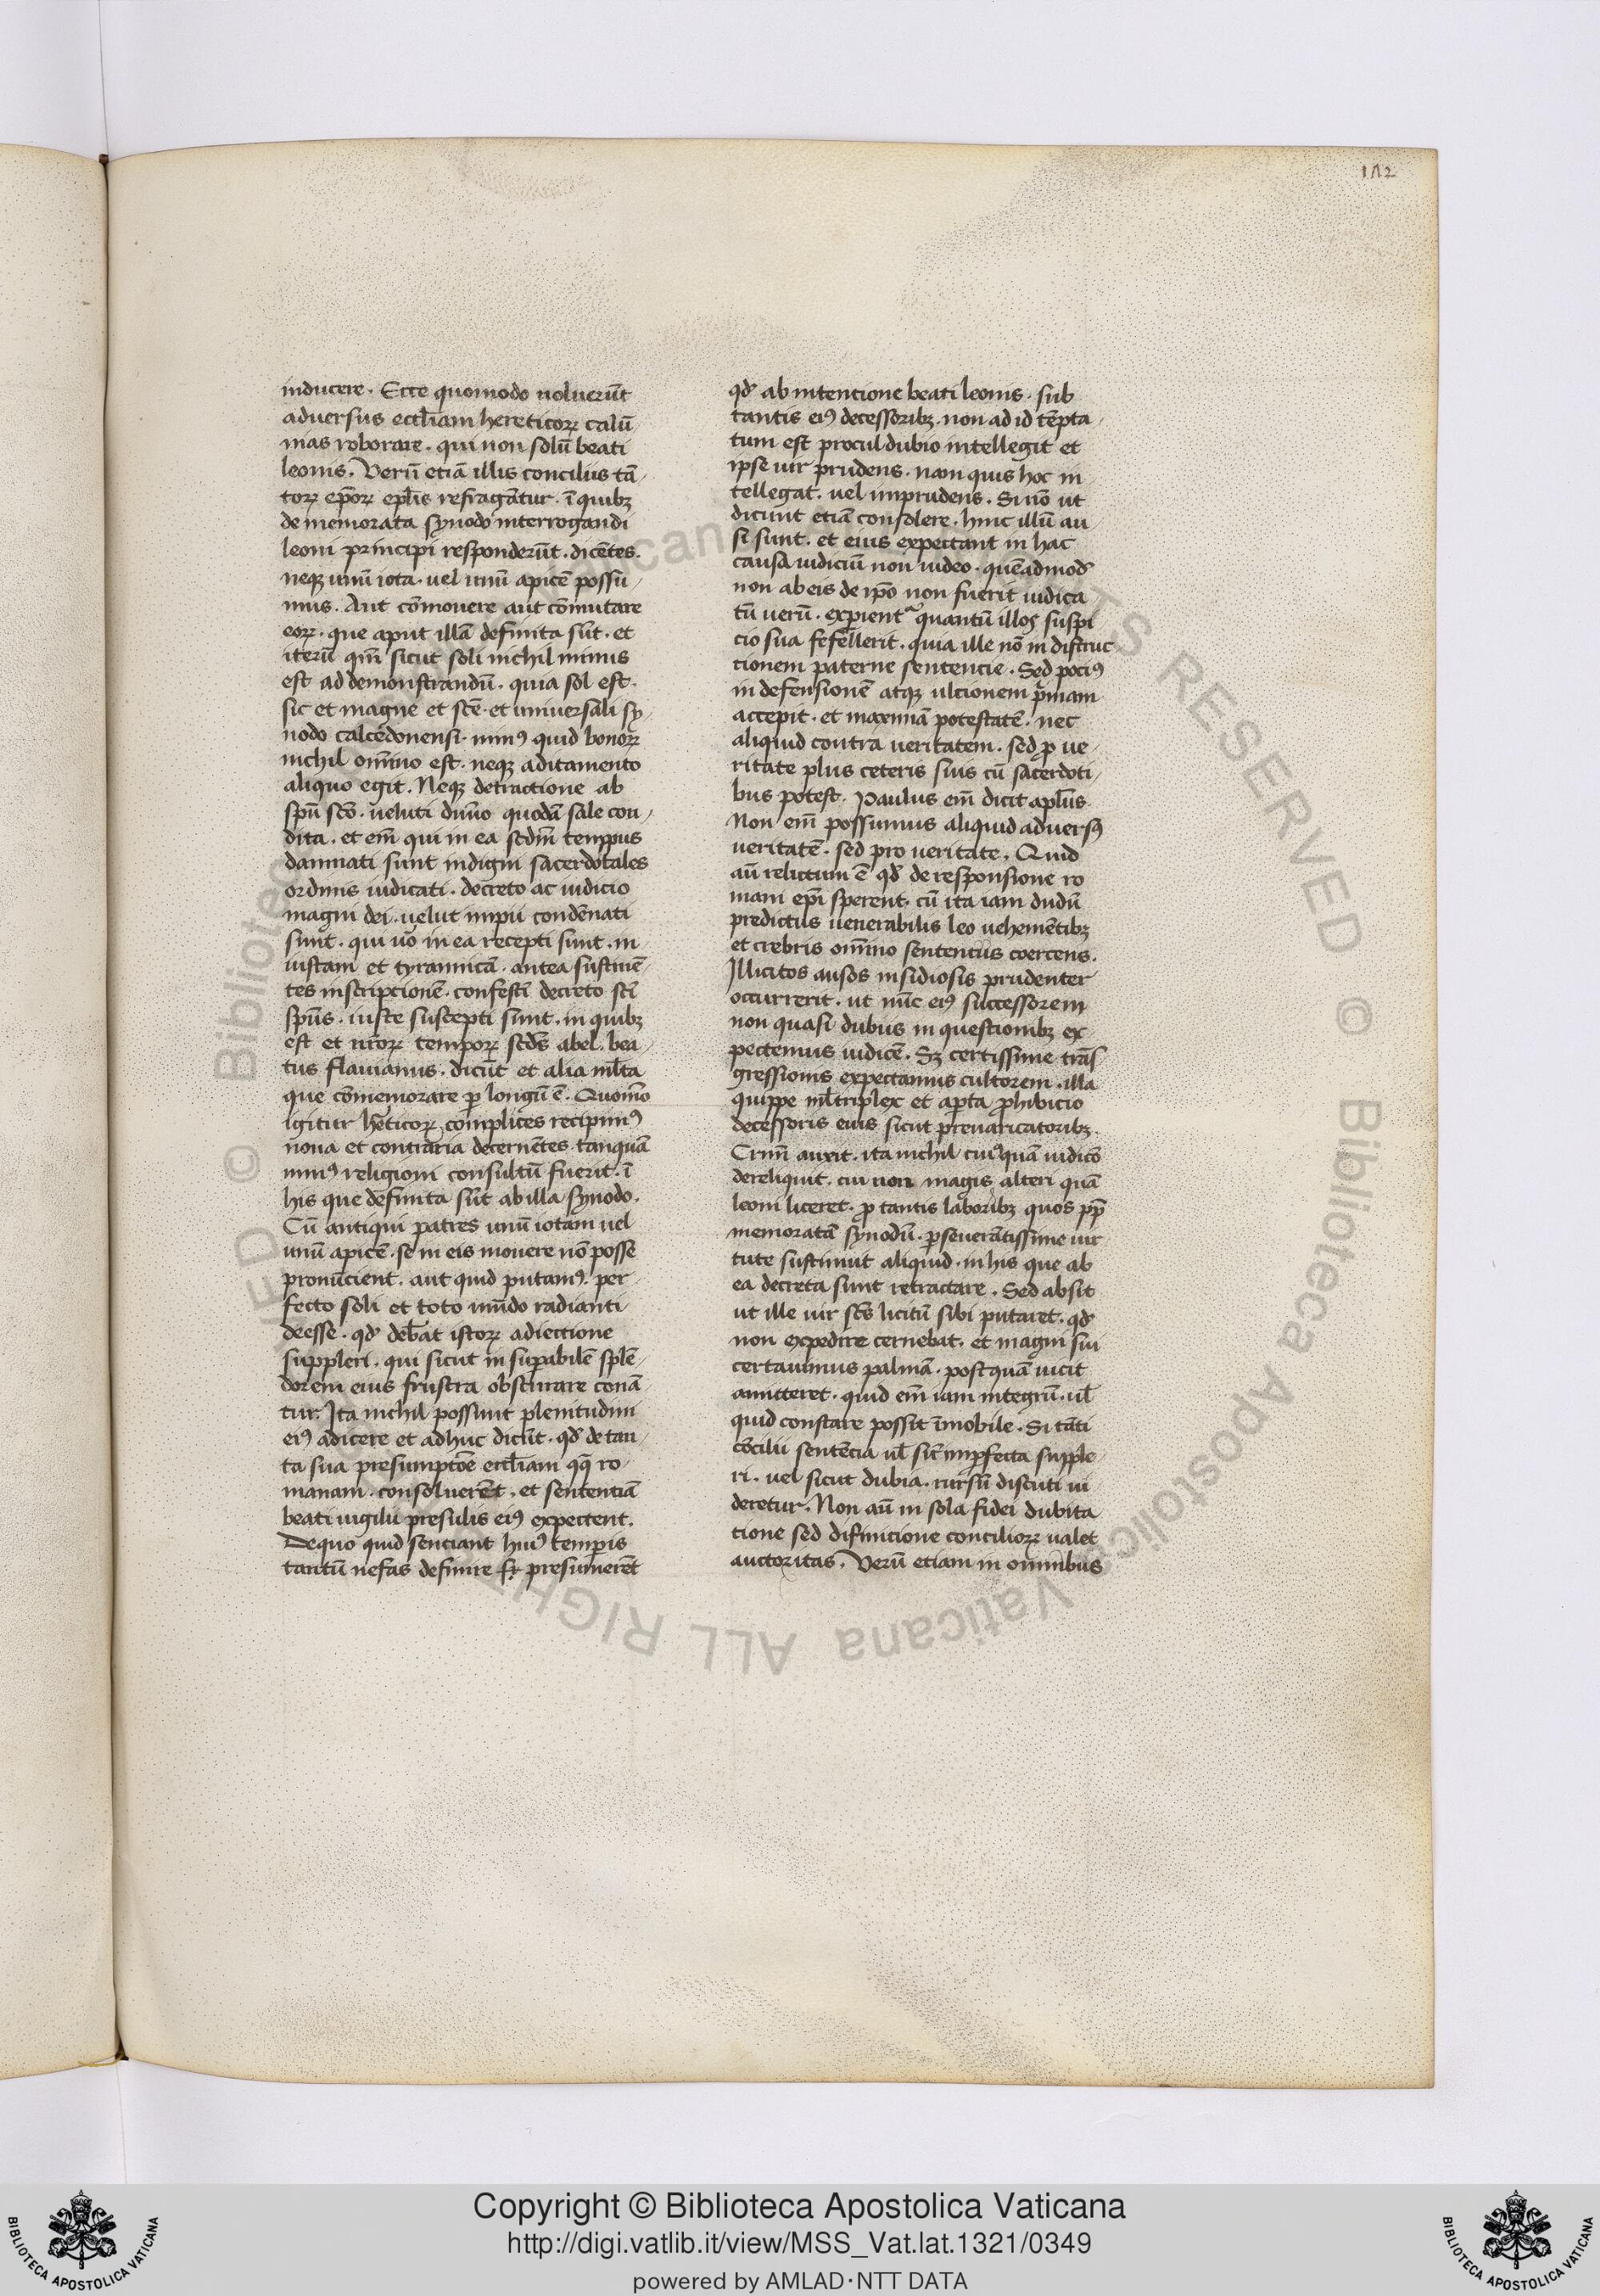 172
inducere. Ecce quomodo uoluerūt
aduersus eccl̄iam hereticoꝝ calū
nias roborare. qui non solū beati
leonis. Verū etiā illis conciliis tā
toꝝ ep̄oꝝ epl̄is refragātur. ī quibꝫ
de memorata synodo interrogandi
leoni principi responderūt. dicētes.
neqꝫ unū iota. uel unū apicē possu
mus. Aut cōmouere aut cōmutare
eoꝝ. que aput illā definita sūt. et
iterū qm̄ sicut soli nichil minus
est ad demonstrandū. quia sol est.
sic et magne et scē. et uniuersali sy
nodo calcedonensi. minꝰ quid bonoꝝ
nichil om̄ino est. neqꝫ aditamento
aliquo egit. Neqꝫ detractione ab
spū sc̄o. ueluti diuīo quodā sale con
dita. et em̄ qui in ea scdm̄ tempus
damnati sunt indigni sacerdotales
ordinis iudicati. decreto ac iudicio
magni dei. uelut impii condēnati
sunt. qui uo in ea recepti sunt. in
iustam et tyrannicā. antea sustinē
tes inscriptionē. confestī decreto sc̄i
sp̄us. iuste suscepti sunt. in quibꝫ
est et nr̄oꝝ tempoꝝ scd̄s abel. bea
tus flauianus. dicūt et alia ml̄ta
que cōmemorare ꝑ longū ē. Quom̄o
igitur hēticoꝝ complices recipimꝰ
noua et contraria decernētes. tanquā
minꝰ religioni consultū fuerit. ī
his que definita sūt ab illa synodo.
Cū antiqui patres unū iotam uel
unū apicē. se in eis mouere nō posse
pronūcient. aut quid putamꝰ. per
fecto soli et toto mūdo radianti
deesse. qd̄ deb̄at istoꝝ adiectione
suppleri. qui sicut insuꝑabilē splē
dorem eius frustra obscurare conā
tur. Ita nichil possunt plenitudini
eiꝰ adicere et adhuc dicūt. qd̄ de tan
ta sua presumptōe eccl̄iam qꝗ ro
manam. consoluerēt. et sententiā
beati uigilii presulis eiꝰ expectent.
De quo quid senciant huiꝰ temꝑis
tantū nefas definire presumerēt
qd̄ ab intencione beati leonis. sub
tantis eiꝰ decessoribꝫ. non ad id tēpta
tum est procul dubio intellegit et
ipse uir prudens. nam quis hoc in
tellegat. uel imprudens. Si nō ut
dicunt etiā consolere. hinc illū au
si sunt. et eius expectant in hac
causa iudiciū non uideo. quēadmod̄
non ab eis de ip̄o non fuerit iudica
tū uerū. exꝑient quantū illos suspi
cio sua fefellerit. quia ille nō in distruc
tionem paterne sentencie. Sed pociꝰ
in defensionē atqꝫ ulcionem p̄mam
accepit. et maximā potestatē. nec
aliquid contra ueritatem. sed ꝓ ue
ritate plus ceteris suis cū sacerdoti
bus potest. Paulus em̄ dicit apl̄us.
Non em̄ possumus aliquid aduersꝰ
ueritatē. sed pro ueritate. Quid
aū relictum ē qd̄ de responsione ro
mani ep̄i sperent. cū ita iam dudū
predictus uenerabilis leo uehemētibꝫ
et crebris om̄ino sententiis coercens.
Illicitos ausos insidiosis prudenter
occurrerit. ut nūc eiꝰ successorem
non quasi dubiis in questionibꝫ ex
pectemus iudicē. Sꝫ certissime trās
gressionis expectamus cultorem. illa
quippe ml̄triplex et aꝑta ꝓhibicio
decessoris eius sicut preuaricatoribꝫ.
Crim̄ auxit. ita nichil cuiꝗuā iudicō
dereliquit. cui non magis alteri quā
leoni liceret. ꝓ tantis laboribꝫ quos ꝑꝑ
memoratā synodū. ꝑseuerātissime uir
tute sustinuit aliquid. in his que ab
ea decreta sunt retractare. Sed absit
ut ille uir sc̄s licitū sibi putaret. qd̄
non expedire cernebat. et magni sui
certauimus palmā. postquā uicit
amitteret. quid em̄ iam integrū. ul̄
quid constare possit īmobile. Si tāti
cōcilii sentēcia ul̄ sic̄ imꝑfecta supple
ri. uel sicut dubia. rursū discuti ui
deretur. Non aū in sola fidei dubita
tione sed difinicione concilioꝝ ualet
auctoritas. Verū etiam in omnibus
© Biblioteca Apostolica Vaticana ALL RIGHTS RESERVED
Copyright © Biblioteca Apostolica Vaticana
http://digi.vatlib.it/view/MSS_Vat.lat.1321/0349
powered by AMLAD·NTT DATA
BIBLIOTECA APOSTOLICA VATICANA
BIBLIOTECA APOSTOLICA VATICANA